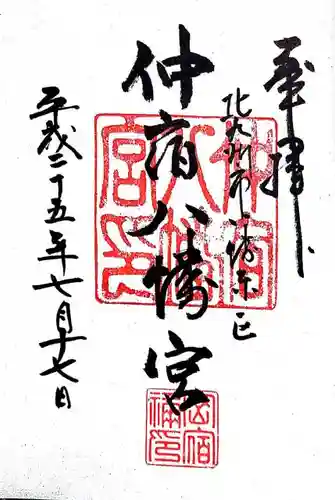 奉拝
北九州市八幡東区
仲宿八幡宮
平成二十五年七月十七日
仲宿八幡宮印